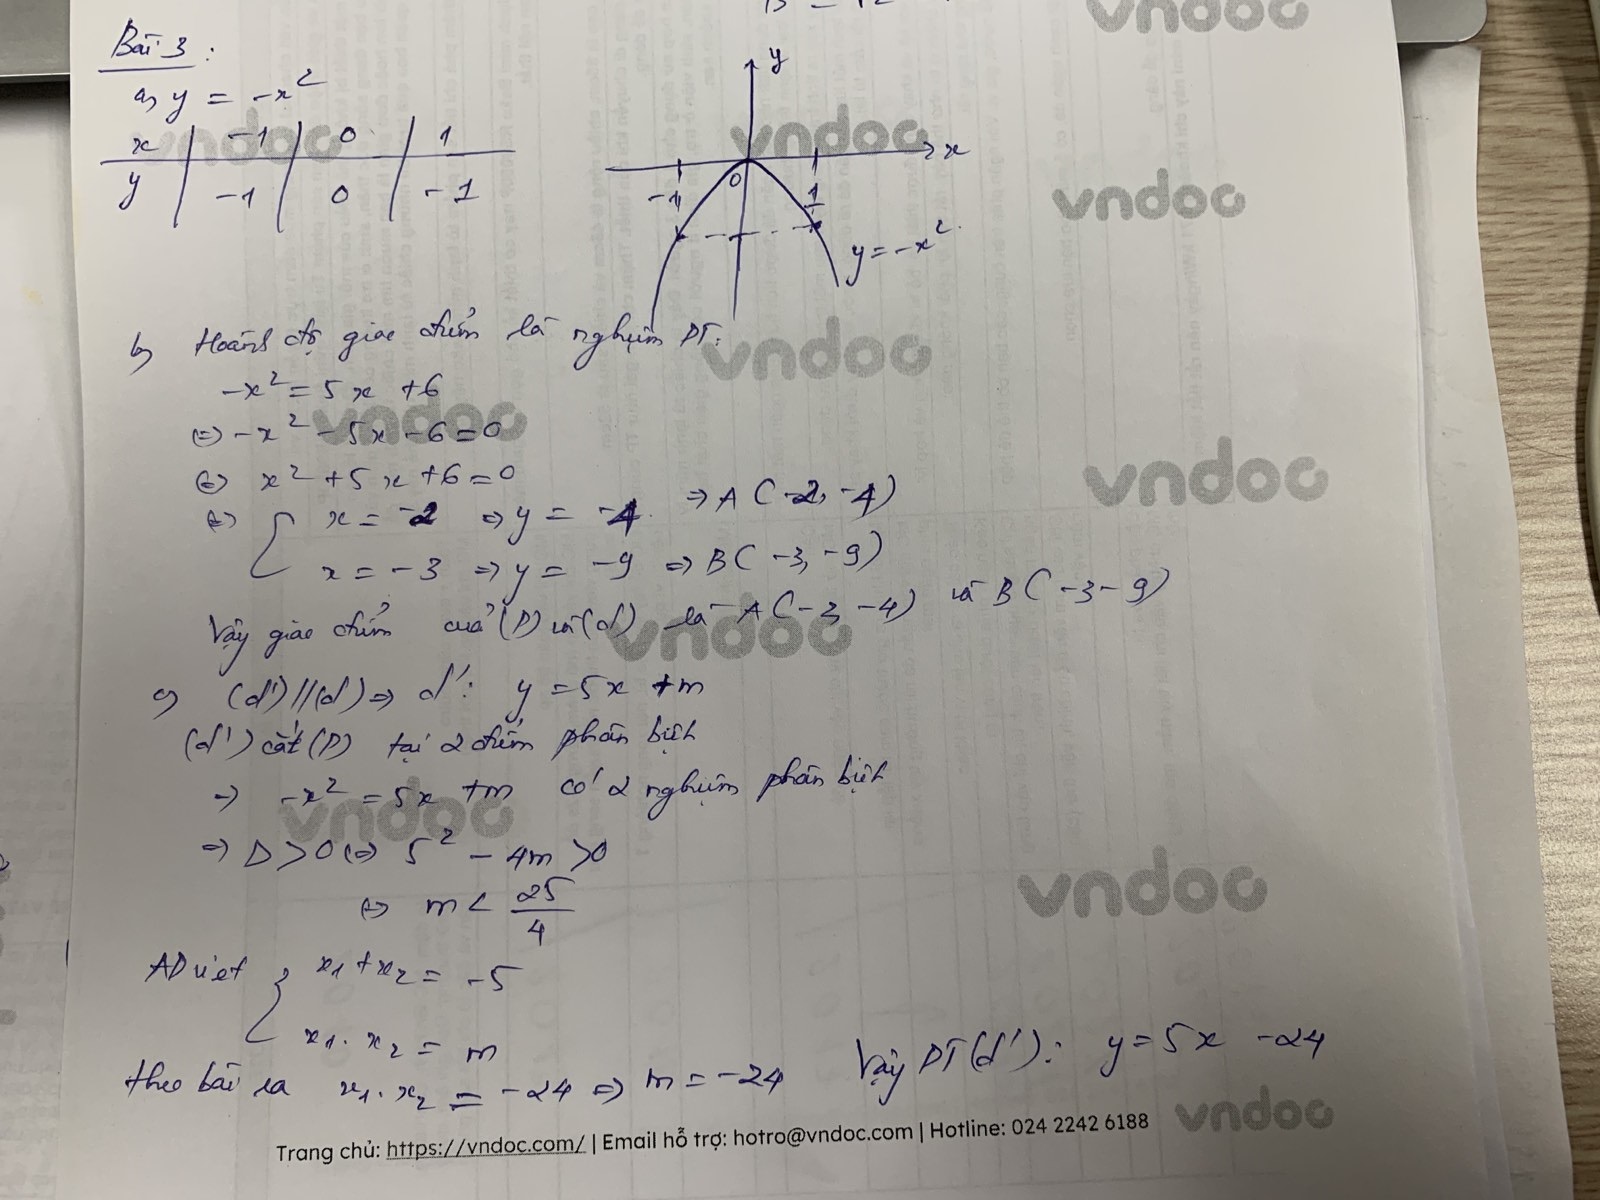 Bài 3:
a, y = -x²
x | -1 | 0 | 1
y | -1 | 0 | -1
y
x
0
-1
1
y = -x²
b, Hoành độ giao điểm là nghiệm PT:
-x² = 5x + 6
⇔ -x² - 5x - 6 = 0
⇔ x² + 5x + 6 = 0
⇔ { x = -2 ⇒ y = -4 ⇒ A(-2, -4)
x = -3 ⇒ y = -9 ⇒ B(-3, -9)
Vậy giao điểm của (P) và (d) là A(-2, -4) và B(-3 -9)
c, (d') // (d) ⇒ d': y = 5x + m
(d') cắt (P) tại 2 điểm phân biệt
⇒ -x² = 5x + m có 2 nghiệm phân biệt
⇒ Δ > 0 ⇔ 5² - 4m > 0
⇔ m < 25/4
AD viet { x₁ + x₂ = -5
x₁ . x₂ = m
theo bài ra x₁ . x₂ = -24 ⇒ m = -24 Vậy PT (d'): y = 5x - 24
Trang chủ: https://vndoc.com/ | Email hỗ trợ: hotro@vndoc.com | Hotline: 024 2242 6188
vndoc
vndoc
vndoc
vndoc
vndoc
vndoc
vndoc
vndoc
vndoc
vndoc
vndoc